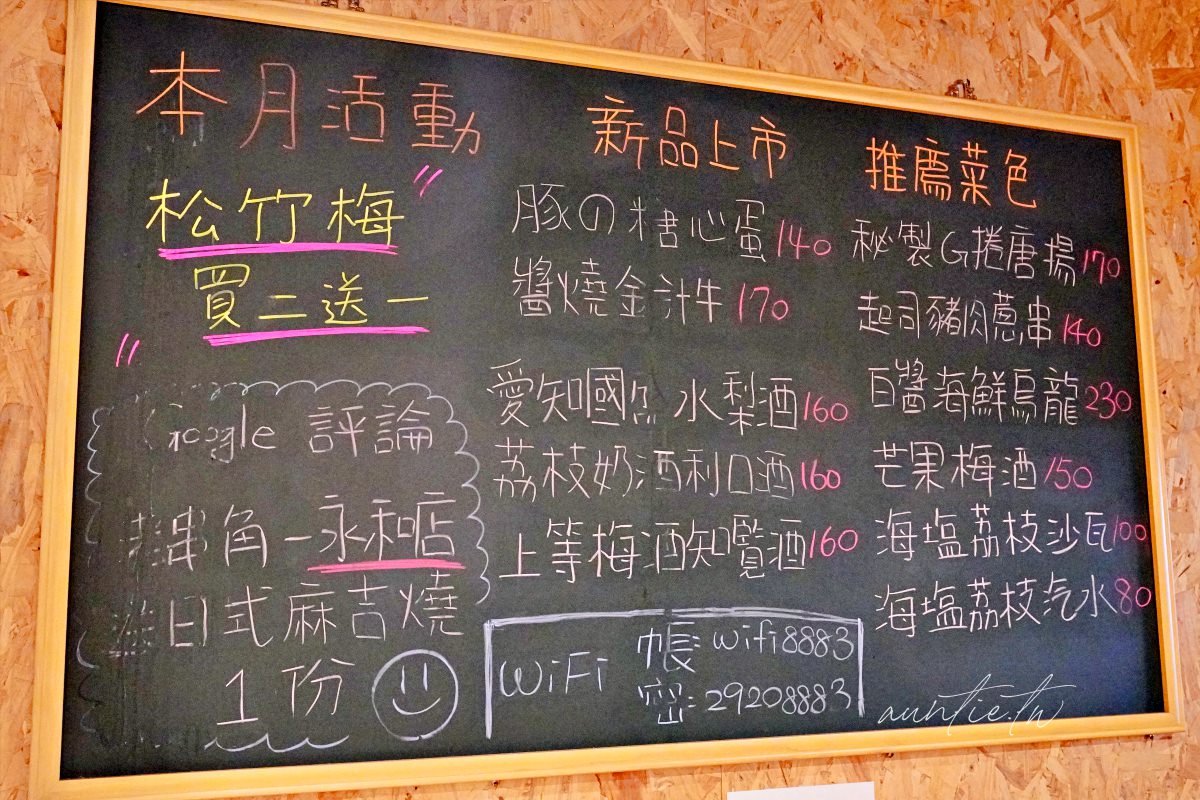 本月活動
松竹梅
買二送一
Google 評論
串角-永和店
送日式麻吉燒
1份
新品上市
豚の糖心蛋 140
醬燒金汁牛 170
愛知國盛 水梨酒 160
荔枝奶酒利口酒 160
上等梅酒知覧酒 160
WiFi
帳: wifi8883
密: 29208883
推薦菜色
秘製G捲唐揚 170
起司豬肉蔥串 140
白醬海鮮烏龍 230
芒果梅酒 150
海塩荔枝沙瓦 100
海塩荔枝汽水 80
auntie.tw